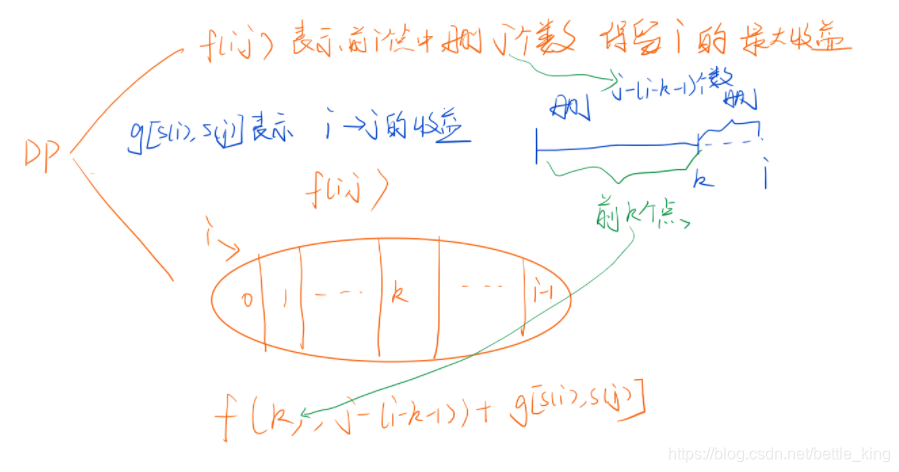 f(i,j) 表示前i个点中删j个数 保留i的最大收益
j-(i-k-1)个数
删 删
g[s(i),s(j)]表示 i→j的收益
DP
k i
f(i,j)
前k个点
i
0 1 ---- k ---- i-1
f(k, j-(i-k-1))+g[s(i),s(j)]
https://blog.csdn.net/bettle_king